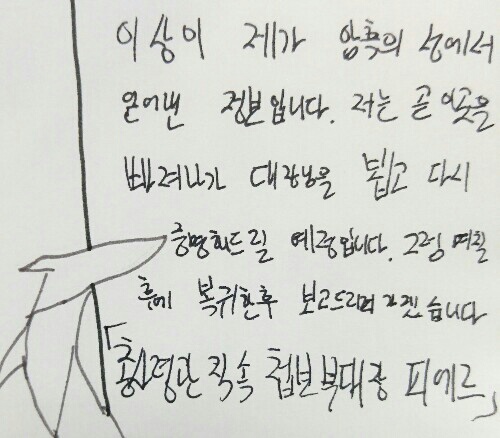 이상이 제가 암흑의 성에서
얻어낸 정보입니다. 저는 곧 이곳을
빠져나가 대장님을 뵙고 다시
증명해드릴 예정입니다. 그럼 며칠
후에 복귀한후 보고드리러 가겠습니다
「촤령관 직속 첩보부대장 피에르」